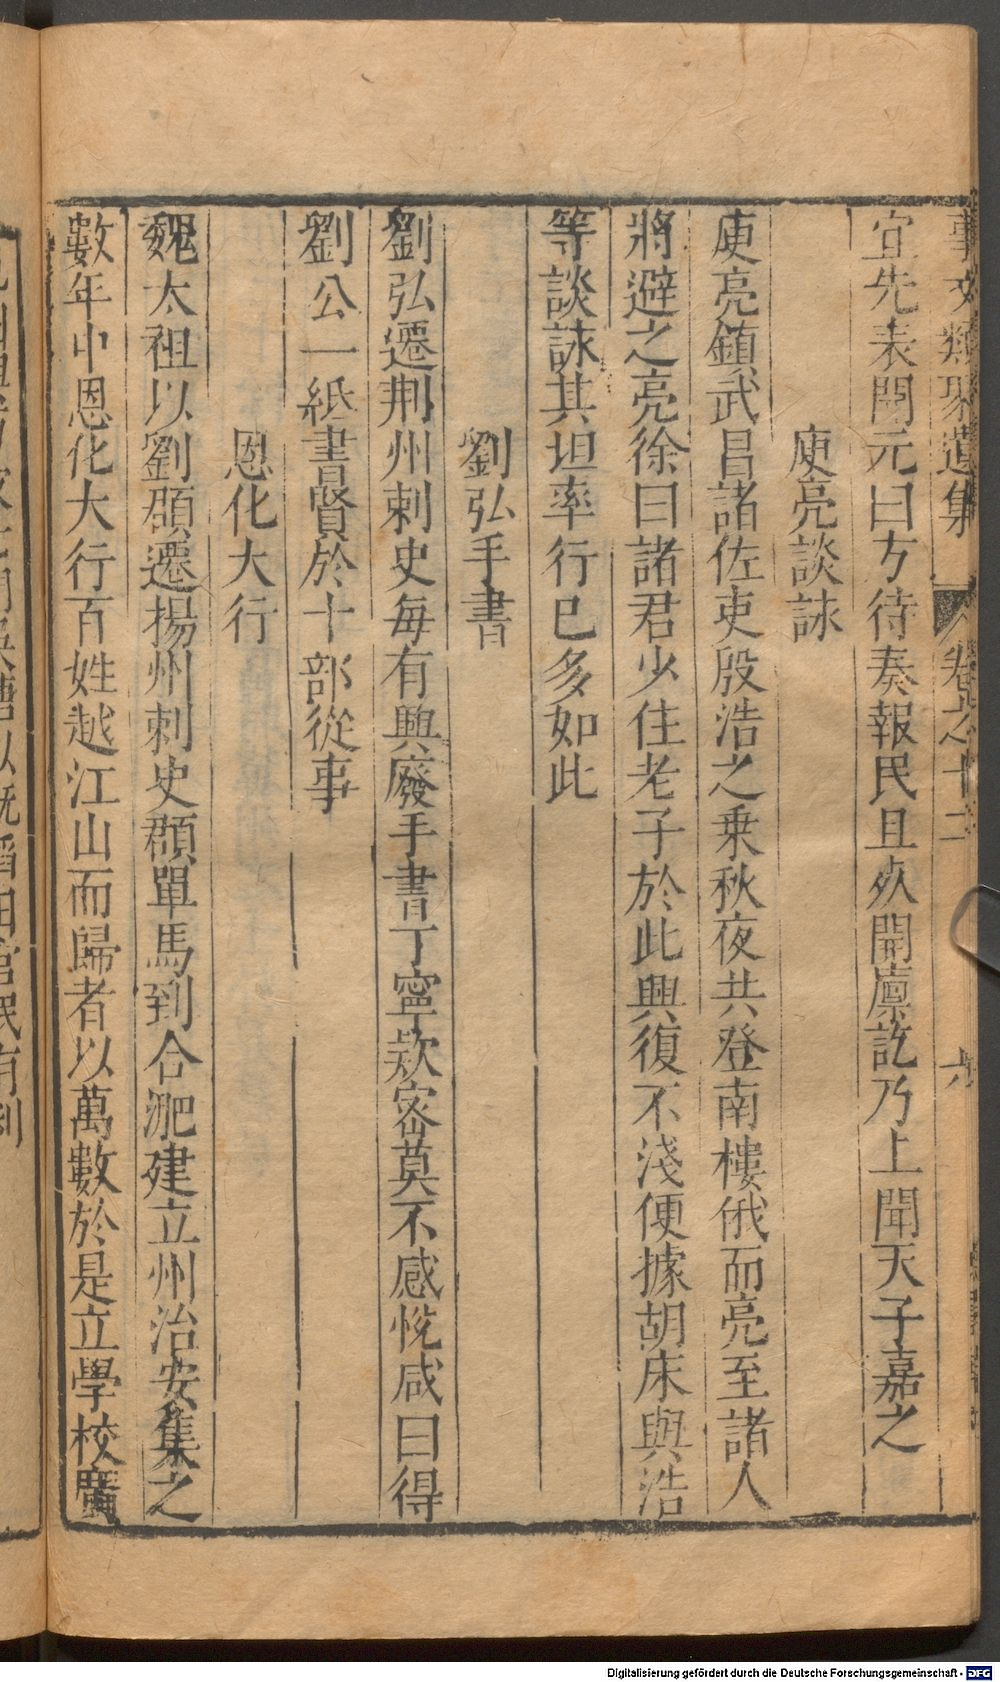 事文類聚遺集 卷之十二 六
宜先表開元曰方待奏報民且歿開廪訖乃上聞天子嘉之
庾亮談詠
庾亮鎮武昌諸佐吏殷浩之乗秋夜共登南樓俄而亮至諸人
將避之亮徐曰諸君少住老子於此興復不淺便據胡床與浩
等談詠其坦率行已多如此
劉弘手書
劉弘遷荆州刺史每有興廢手書丁寧欵宻莫不感恱咸曰得
劉公一紙書賢於十部從事
恩化大行
魏太祖以劉頵遷揚州刺史頵單馬到合淝建立州治安集之
數年中恩化大行百姓越江山而歸者以萬數於是立學校廣
Digitalisierung gefördert durch die Deutsche Forschungsgemeinschaft - DFG